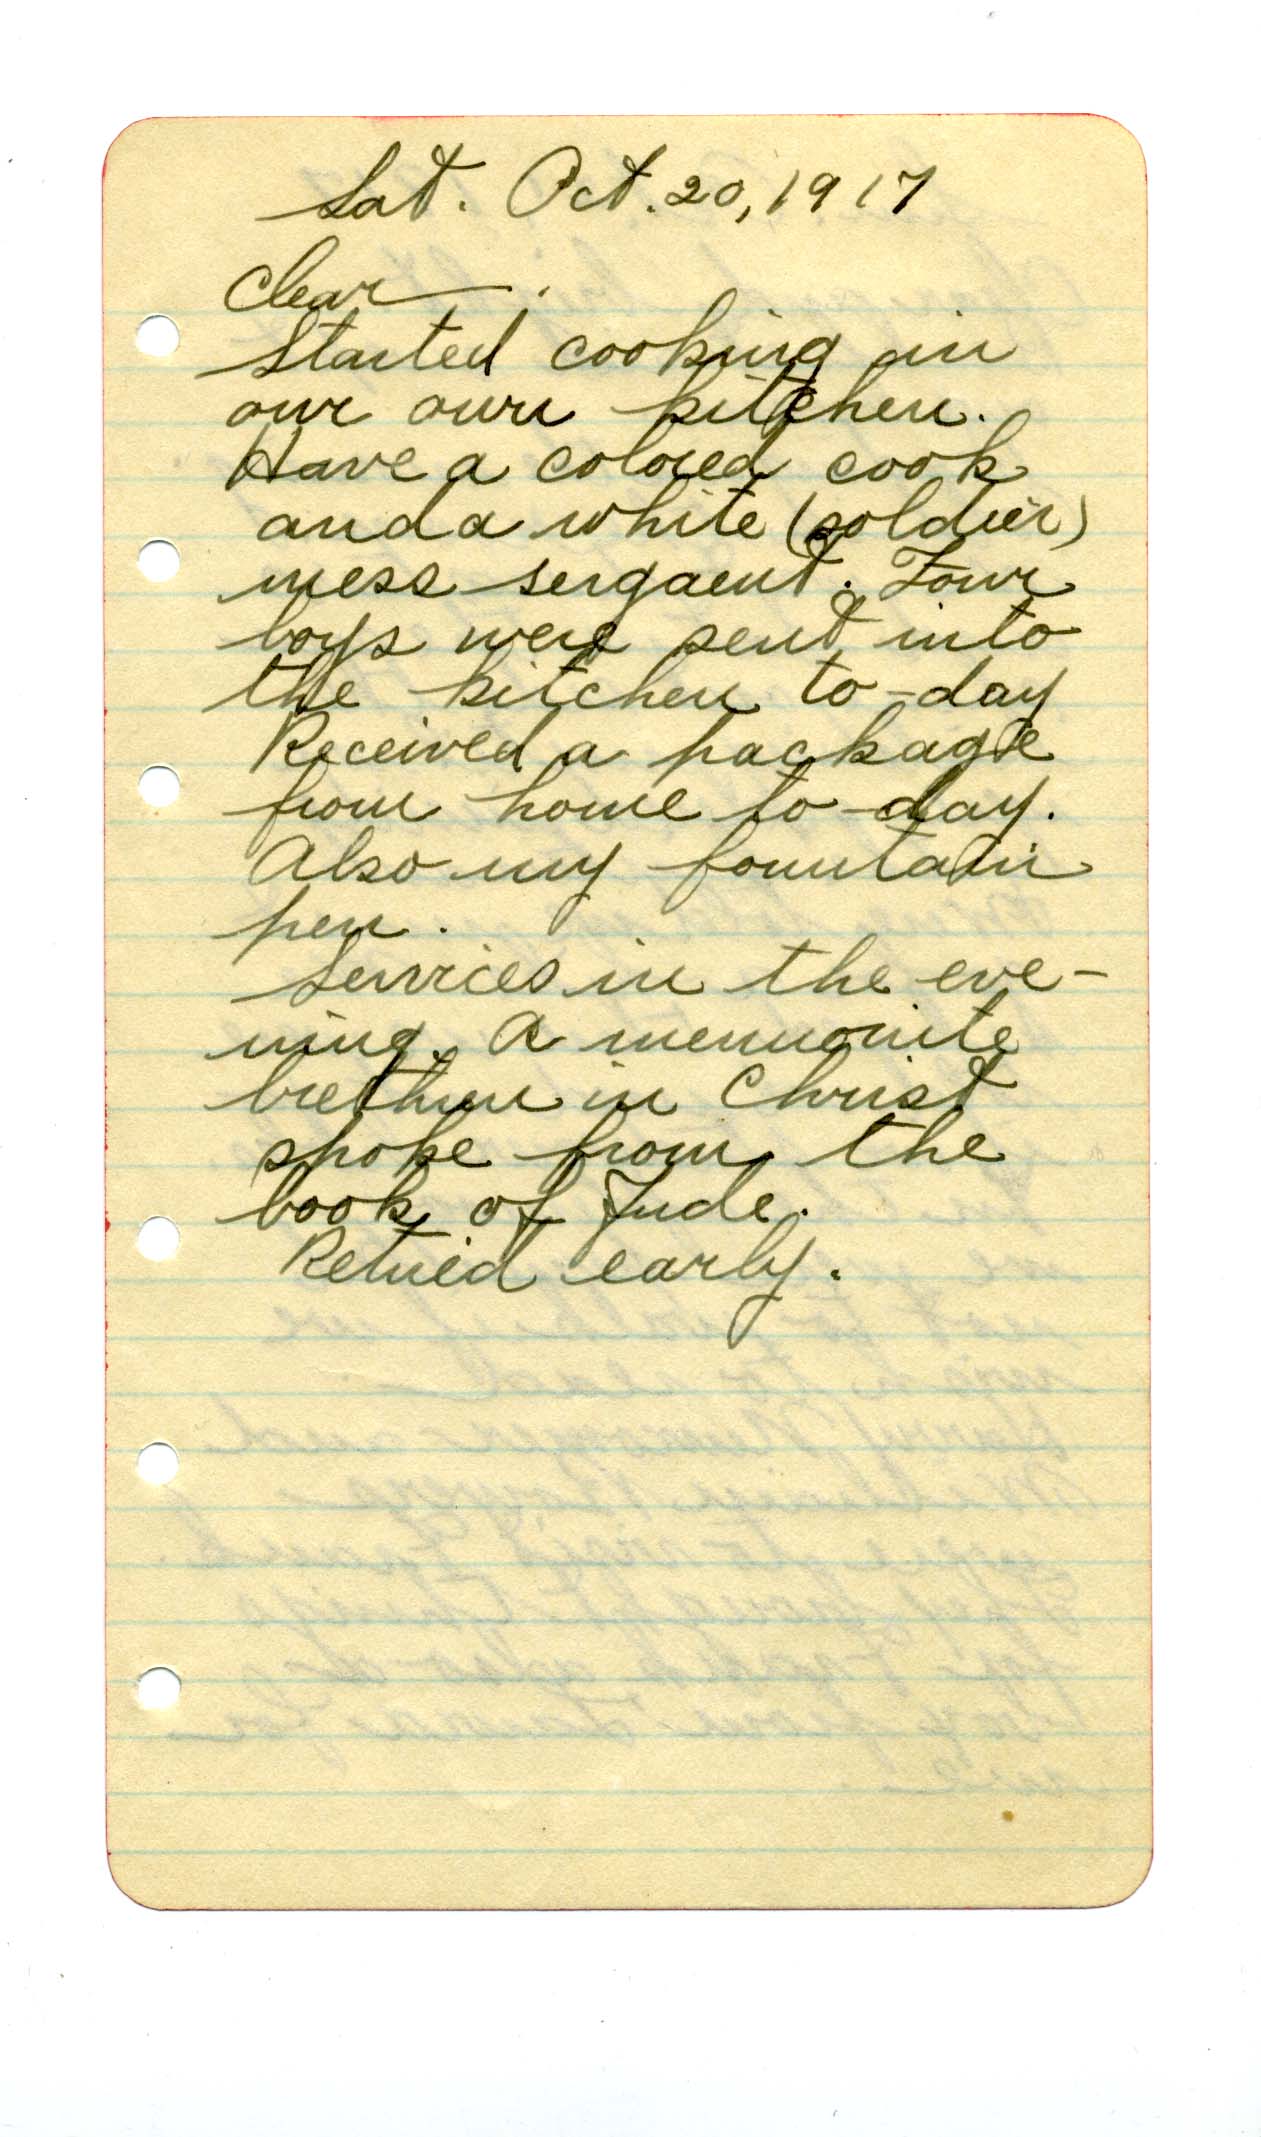 Sat. Oct. 20, 1917
Clear.
Started cooking in
our own kitchen.
Have a colored cook
and a white (soldier)
mess sergaent. Four
boys were sent into
the kitchen to-day
Received a package
from home to-day.
Also my fountain
pen.
Services in the eve-
ning. A mennonite
brethren in Christ
spoke from the
book of Jude.
Retired early.